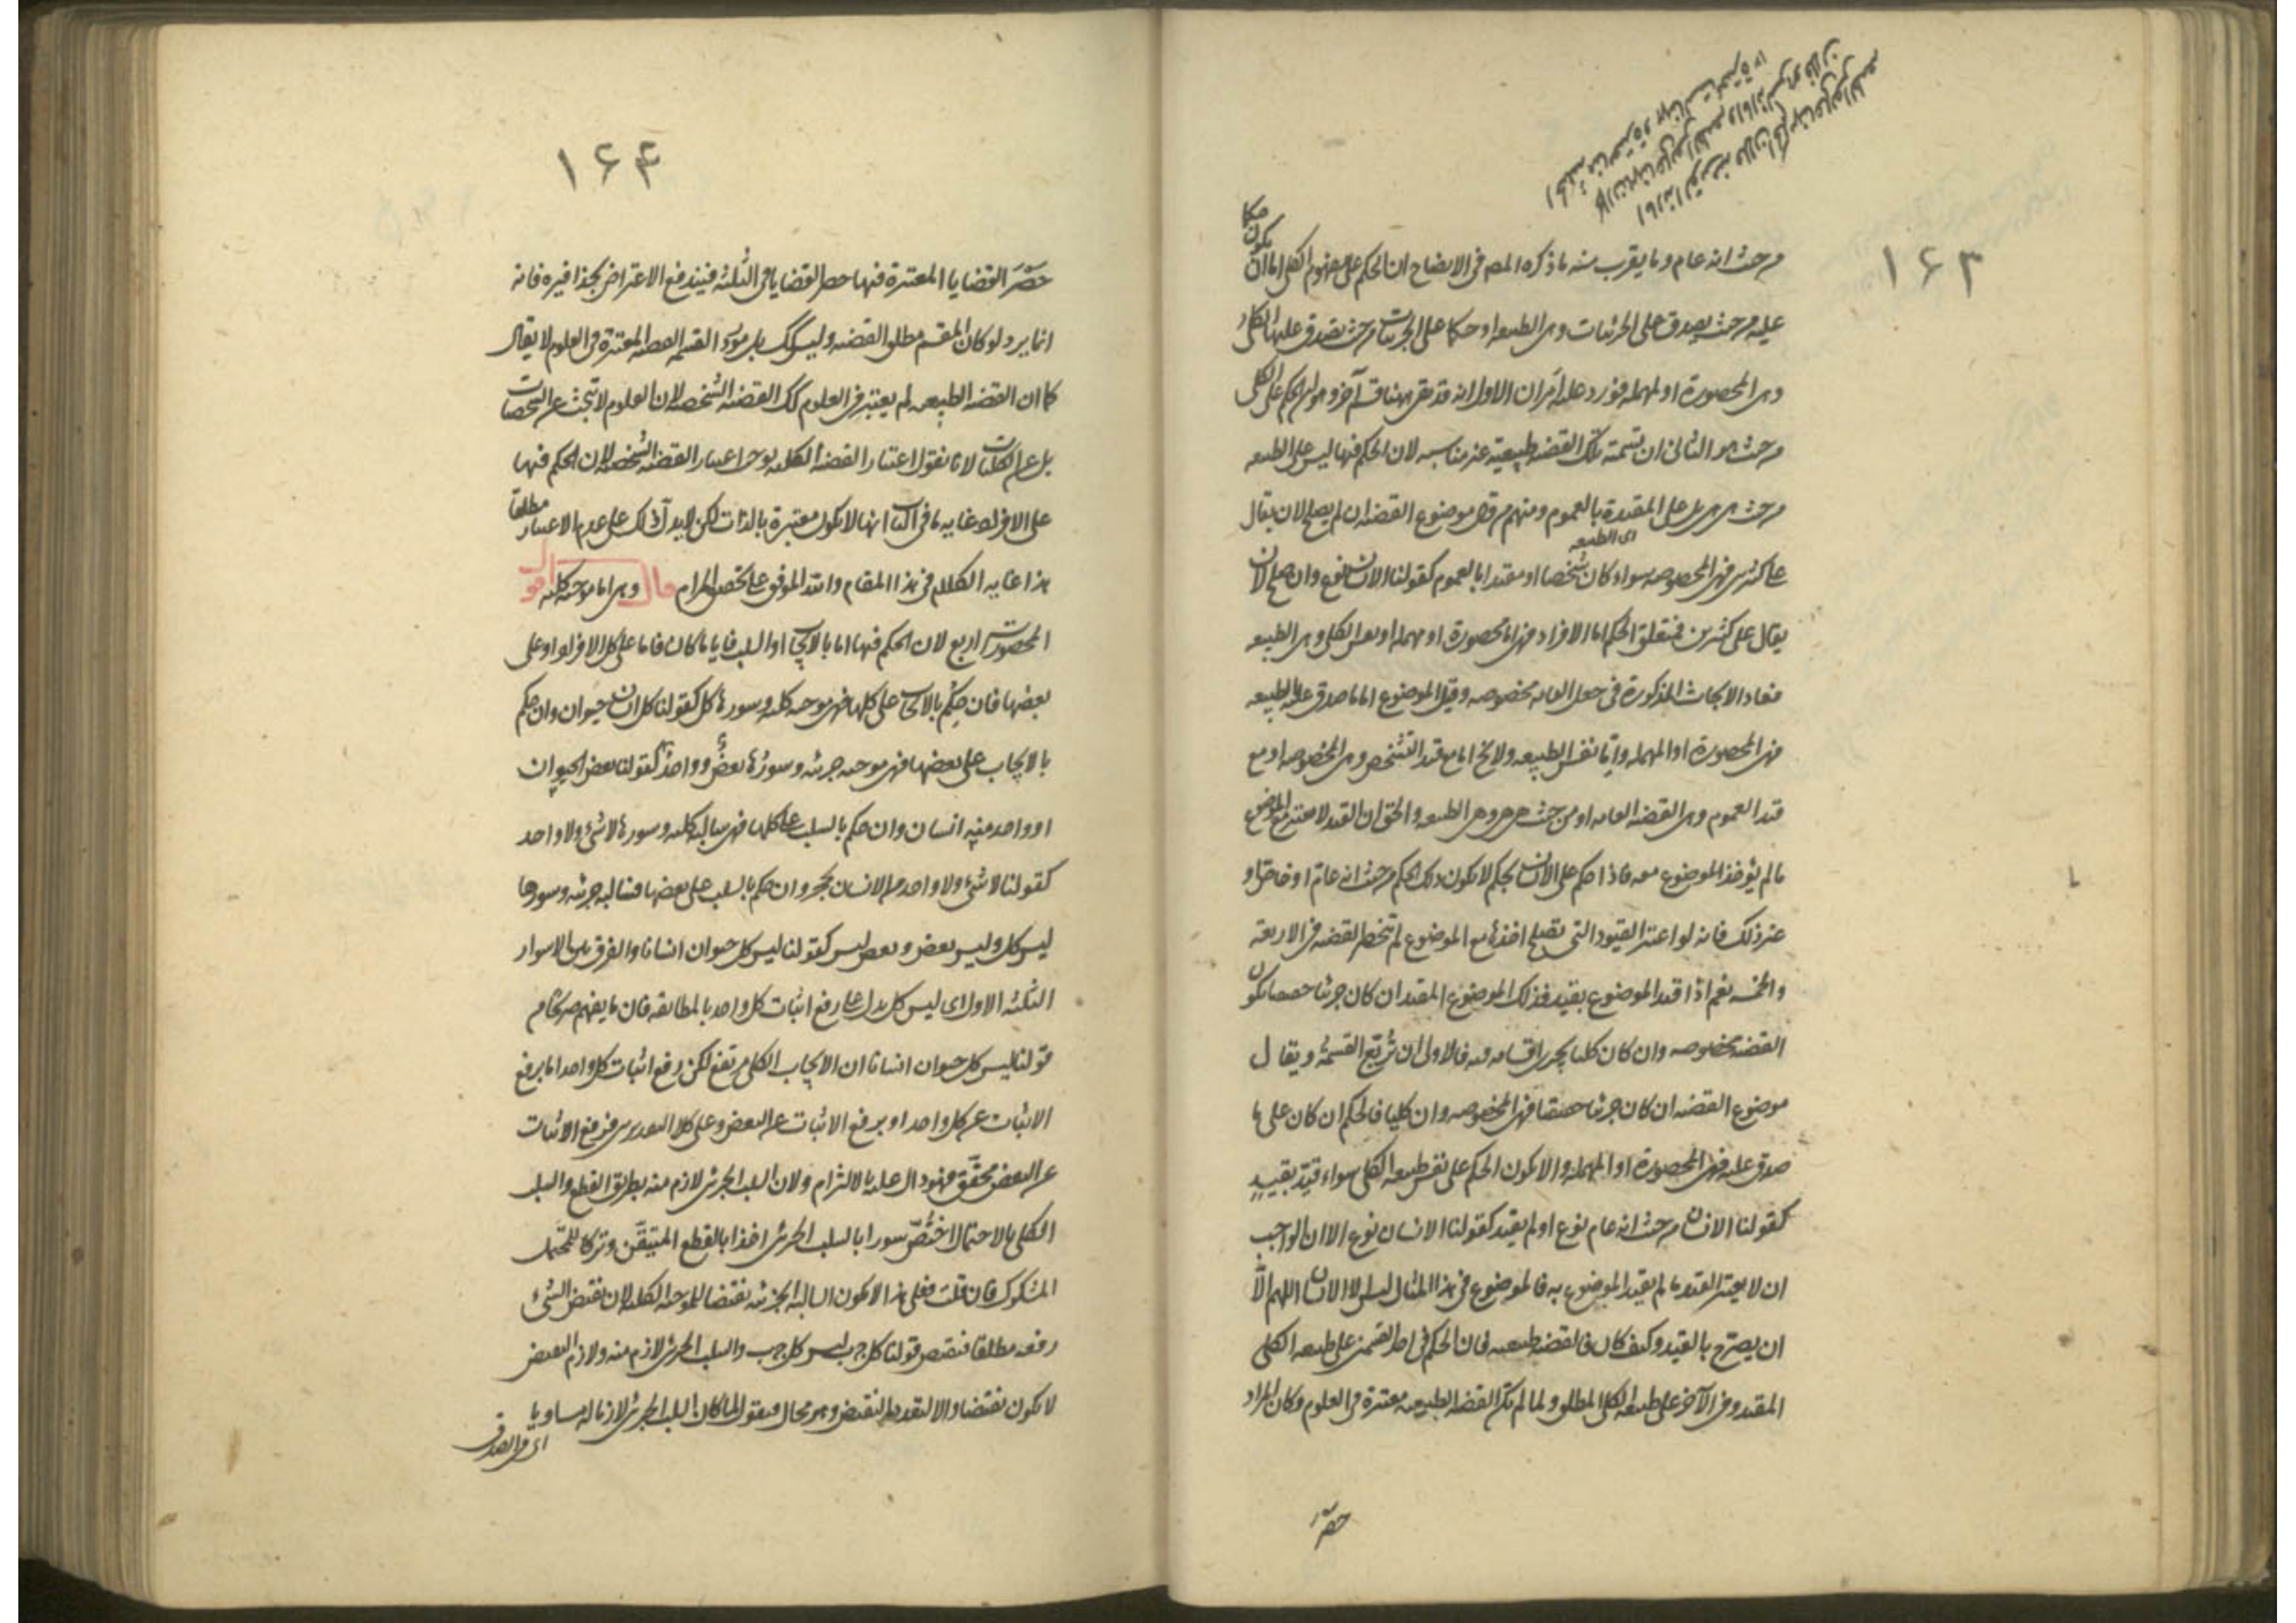 ١٦٣
من حيث انه عام وما يقرب منه ما ذكره المصه فى الايضاح ان الحكم على مفهوم الكلى اما ان يكون حكما
عليه من حيث يصدق على الجزئيات وهى الطبيعه او حكما على الجزئيات من حيث يصدق عليها الكلى
وهى المحصورة او المهمله فورد عليه امران الاول انه قد بقى ههنا قسم آخر وهو ان الحكم على الكلى
من حيث هو الثانى ان تسمية تلك القضيه طبيعية غير مناسبه لان الحكم فيها ليس على الطبيعه
من حيث هى هى بل على المقيدة بالعموم ومنهم من قال موضوع القضيه ان لم يصلح لان يقال
اى الطبيعه
على كثيرين فهى المخصوصه سواء كان شخصا او مقيدا بالعموم كقولنا الانسان نوع وان صلح لان
يقال على كثيرين فمتعلق الحكم اما الافراد فهى اما محصورة او مهمله او نفس الكلى وهى الطبيعه
فعاد الابحاث المذكورة فى جعل العامه مخصوصه وقيل الموضوع اما ما صدق عليه الطبيعه
فهى المحصورة او المهمله واما نفس الطبيعه ولا يخ اما مع قيد التشخص وهى المخصوصه او مع
قيد العموم وهى القضيه العامه او من حيث هى هى وهى الطبيعه والحق ان القيد لا يعتبر مع الموضوع
ما لم يؤخذ الموضوع معه فاذا حكم على الانسان بحكم لا يكون ذلك الحكم من حيث انه عام او خاص او
غير ذلك فانه لو اعتبر القيود التى تصلح اخذها مع الموضوع لم تنحصر القضيه فى الاربعة
والخمسه نعم اذا قيد الموضوع بقيد فذلك الموضوع المقيد ان كان جزئيا حقيقيا يكون
القضيه مخصوصه وان كان كليا يجرى اقسامه فيه فالاولى ان تربّع القسمة ويقال
موضوع القضيه ان كان جزئيا حقيقيا فهى المخصوصه وان كليا فالحكم ان كان على ما
صدق عليه فهى المحصورة او المهمله والا يكون الحكم على نفس طبيعه الكلى سواء قيّد بقيد
كقولنا الانسان من حيث انه عام نوع او لم يقيد كقولنا الانسان نوع الا ان الواجب
ان لا يعتبر القيد ما لم يقيد الموضوع به فالموضوع فى هذا المثال ليس الا الانسان اللهم الّا
ان يصرّح بالقيد وكيف كان فالقضيه طبيعيه فان الحكم فى احد القسمين على طبيعه الكلى
المقيد وفى الآخر على طبيعه الكلى المطلق ولما لم تكن القضيه الطبيعيه معتبرة فى العلوم وكان المراد
حصر
١٦٤
حَصْرَ القضايا المعتبرة فيها حصر القضايا فى الثلثه فيندفع الاعتراض بحذافيره فانه
انما يرد لو كان المقسم مطلق القضيه وليس كك بل مورد القسمه القضيه المعتبرة فى العلوم لا يقال
كما ان القضيه الطبيعيه لم يعتبر فى العلوم كك القضيه الشخصيه لان العلوم لا تبحث عن الشخصيات
بل عن الكليات لانا نقول اعتبار القضيه الكليه يوجب اعتبار القضيه الشخصيه لان الحكم فيها
على الافراد غايه ما فى الباب انها لا يكون معتبرة بالذات لكن لا يدل ذلك على عدم الاعتبار مطلقا
هذا غايه الكلام فى هذا المقام والله الموفق على تلخيص المرام قال وهى اما موجبه كليه اقول
المحصورات اربع لان الحكم فيها اما بالايجاب او السلب فايا ما كان فاما على كل الافراد او على
بعضها فان حكم بالايجاب على كلها فهى موجبه كليه وسورها كل كقولنا كل انسان حيوان وان حكم
بالايجاب على بعضها فهى موجبه جزئيه وسورها بعض وواحد كقولنا بعض الحيوان
او واحد منه انسان وان حكم بالسلب على كلها فهى سالبه كليه وسورها لا شئ ولا واحد
كقولنا لا شئ ولا واحد من الانسان بحجر وان حكم بالسلب على بعضها فسالبه جزئيه وسورها
ليس كل وليس بعض وبعض ليس كقولنا ليس كل حيوان انسانا والفرق بين الاسوار
الثلثه الاول اى ليس كل يدل على رفع اثبات كل واحد بالمطابقه فان ما يفهم صريحا من
قولنا ليس كل حيوان انسانا ان الايجاب الكلى مرتفع لكن رفع اثبات كل واحد اما برفع
الاثبات عن كل واحد او برفع الاثبات عن البعض وعلى كلا التقديرين فرفع الاثبات
عن البعض محقّق فهو دال عليه بالالتزام ولان السلب الجزئى لازم منه بطريق القطع والسلب
الكلى بالاحتمال اختصّ سورا بالسلب الجزئى اخذا بالقطع المتيقّن وتركا للمحتمل
المشكوك فان قلت فعلى هذا لا يكون السالبه الجزئيه نقيضا للموجبه الكليه لان نقيض الشئ
رفعه مطلقا فنقيض قولنا كل ج ب ليس كل ج ب والسلب الجزئى لازم منه ولازم النقيض
لا يكون نقيضا والا لتعدد النقيض وهو محال فنقول لما كان السلب الجزئى لازما له مساويا
اى فى الصدق